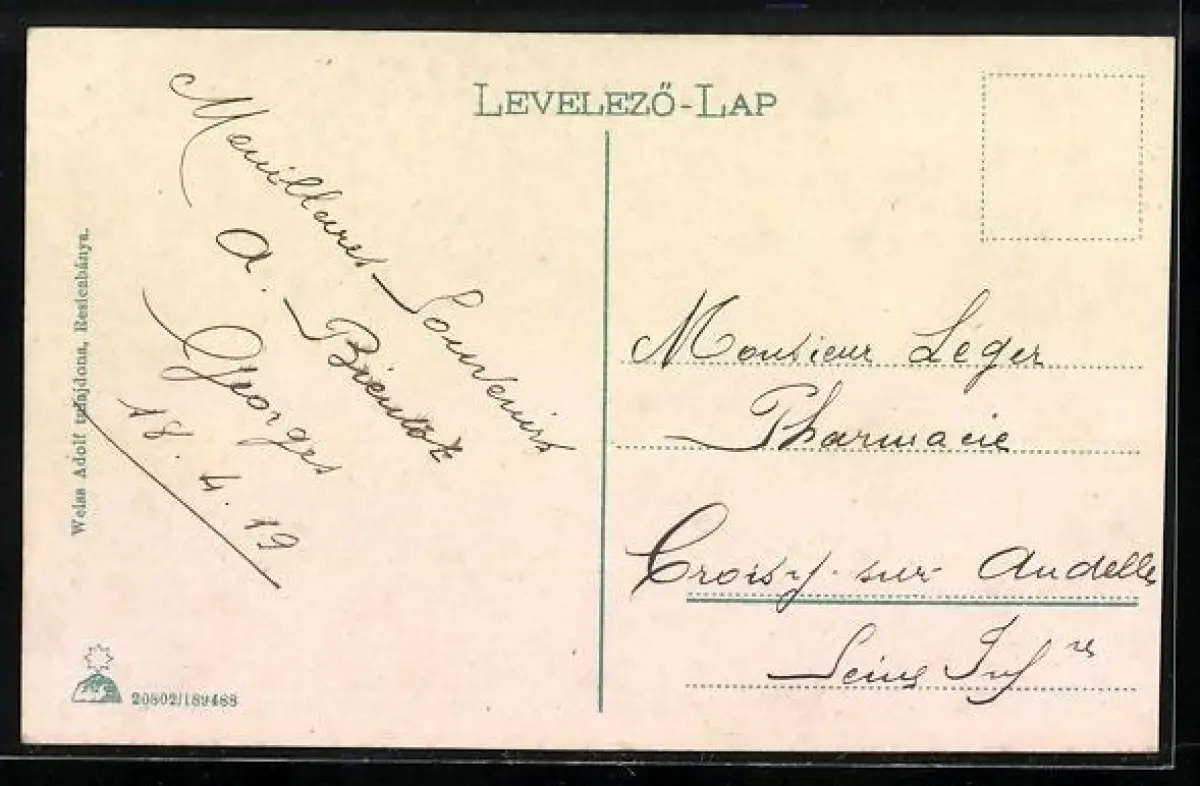 LEVELEZŐ-LAP
Meuilleures Souvenirs
A. Bientôt
Georges
18.4.19
Monsieur Léger
Pharmacie
Croisy-sur-Andelle
Seine Infres
Weiss Adolf tulajdona, Resicabánya.
20802/189488